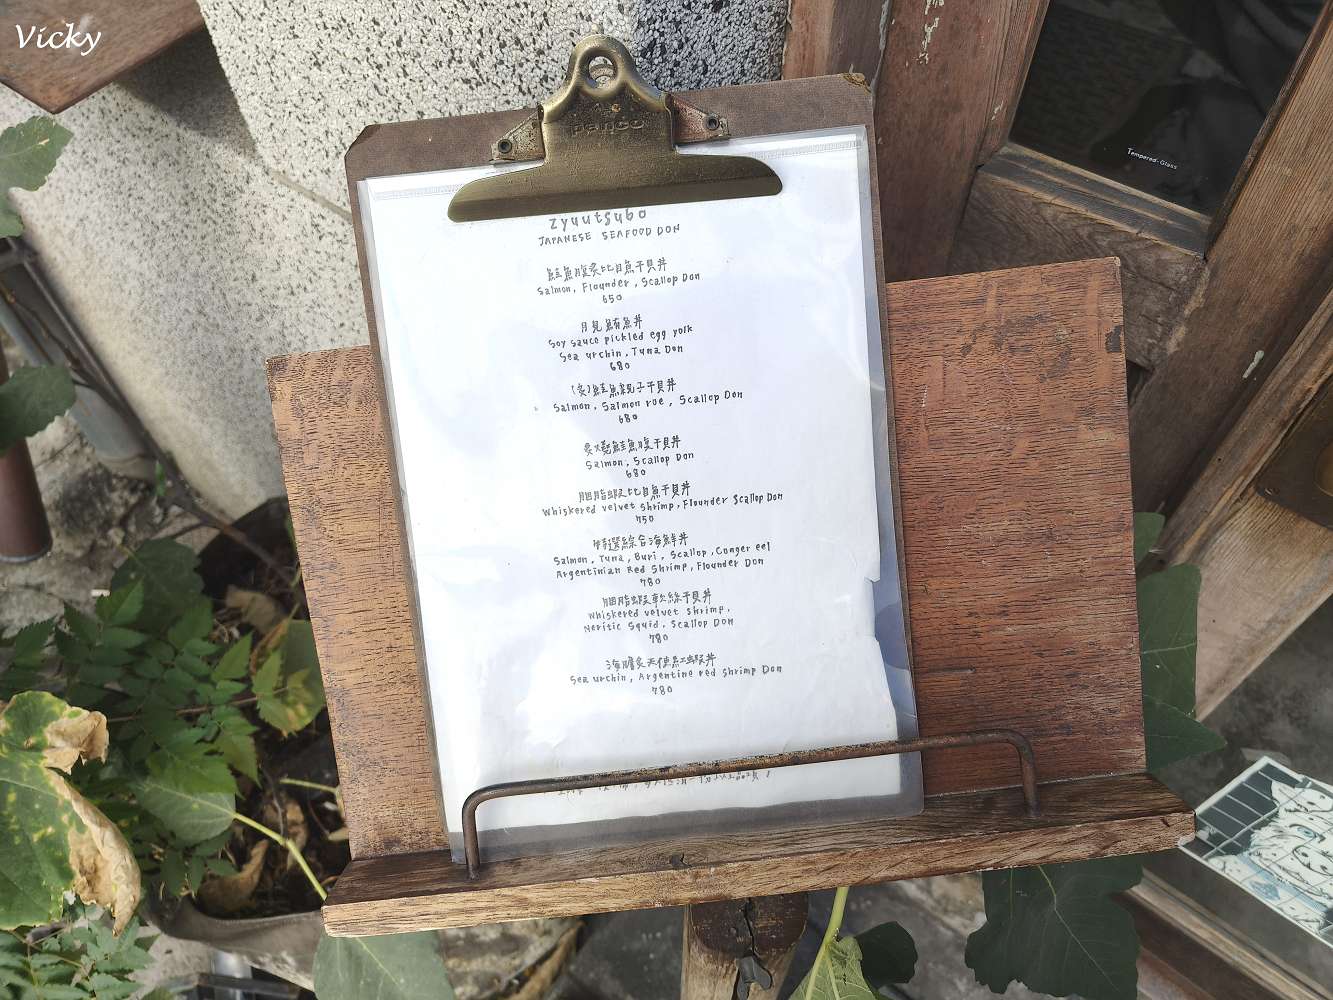 Vicky
zyuutsubo
JAPANESE SEAFOOD DON
鮭魚腹炙比目魚干貝丼
Salmon, Flounder, Scallop Don
650
月見鮪魚丼
Soy sauce pickled egg yolk
Sea urchin, Tuna Don
680
(炙)鮭魚親子干貝丼
Salmon, Salmon roe, Scallop Don
680
炙燒鮭魚腹干貝丼
Salmon, Scallop Don
680
胭脂蝦比目魚干貝丼
Whiskered velvet shrimp, Flounder Scallop Don
750
特選綜合海鮮丼
Salmon, Tuna, Buri, Scallop, Conger eel
Argentinian Red Shrimp, Flounder Don
780
胭脂蝦軟絲干貝丼
Whiskered velvet shrimp,
Neritic Squid, Scallop Don
780
海膽炙天使紅蝦丼
Sea urchin, Argentine red shrimp Don
780
Tempered-Glass